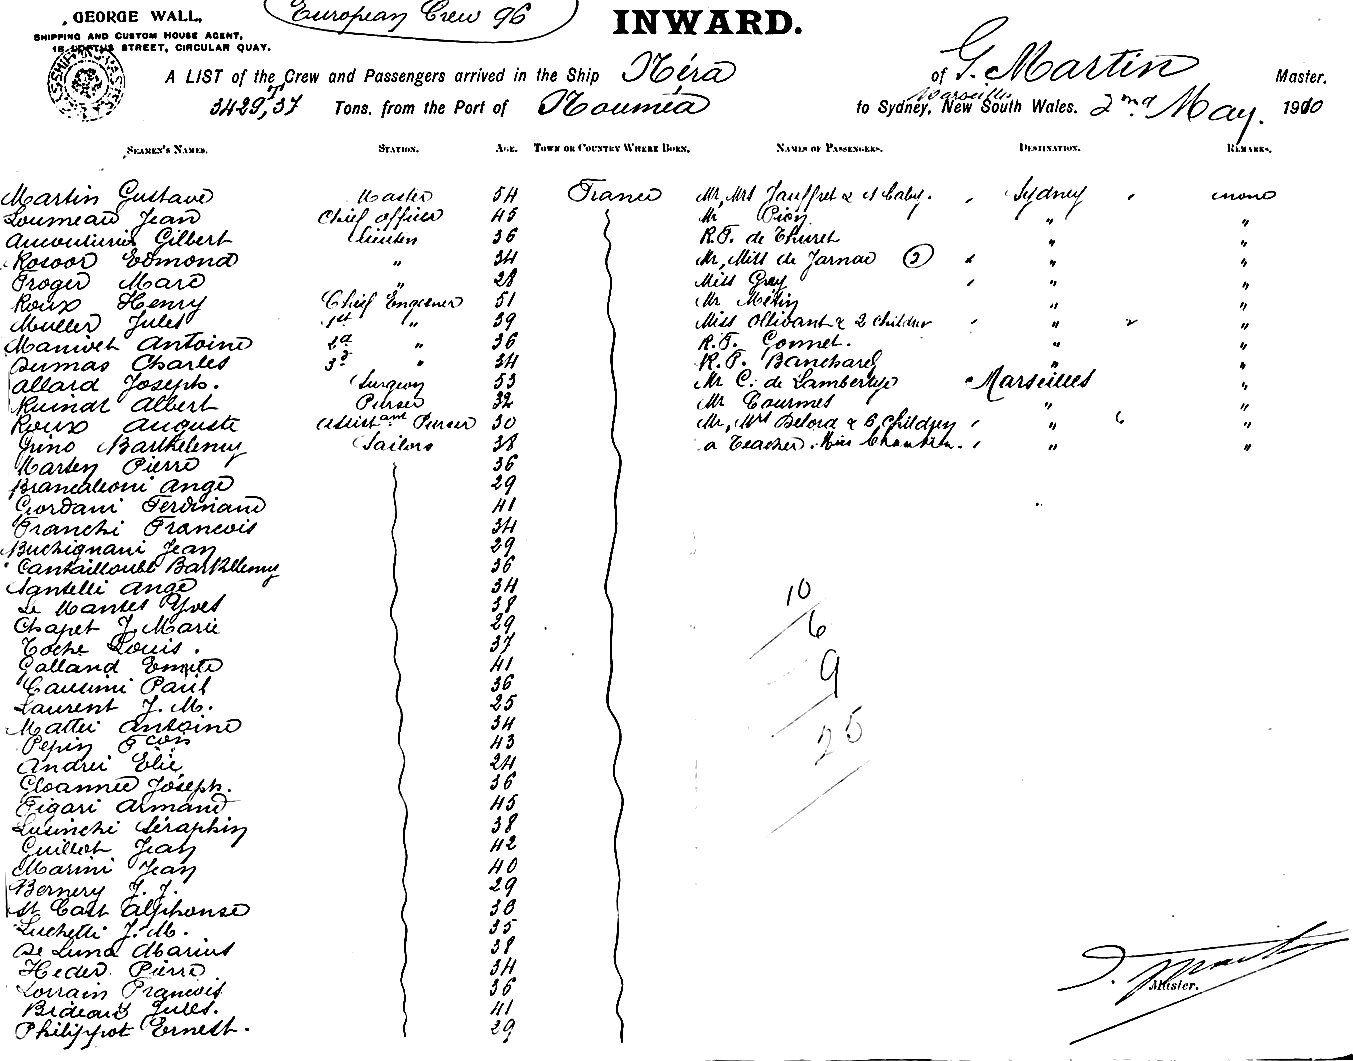 GEORGE WALL,
SHIPPING AND CUSTOM HOUSE AGENT,
STREET, CIRCULAR QUAY.
European Crew 96
INWARD.
A LIST of the Crew and Passengers arrived in the Ship Néra of G. Martin Master.
3429,37 Tons, from the Port of Nouméa to Sydney, New South Wales. Marseilles 2nd May. 1910
SEAMEN'S NAMES. STATION. AGE. TOWN OR COUNTRY WHERE BORN. NAMES OF PASSENGERS. DESTINATION. REMARKS.
Martin Gustave Master 54 France Mr, Mrs Jauffret & 1 Baby. Sydney none
Loumeau Jean Chief officer 45 Mr Pion " "
Gilbert 36 R.F. de Thuret " "
Edmond " 34 Mr, Miss de Jarnac 2 " "
Froger Marc " 28 Miss Grey " "
Roux Henry Chief Engineer 51 Mr " "
Muller Jules 1st " 39 Miss Ollivant & 2 children " "
Manivet Antoine 2d " 36 R.F. Connet. " "
Dumas Charles 3d " 34 R.F. Blanchard " "
Allard Joseph. Surgeon 53 Mr C. de Lambertye Marseilles "
Ruinat Albert Purser 32 Mr Courmes " "
Roux Auguste assistant Purser 30 Mr, Mrs Delord & 6 children " 6 "
Grino Barthélemy Sailors 38 a Teacher. Miss " "
Pierre 36
Brancaleoni Ange 29
Giordani Ferdinand 41
Franchi Francois 34
Buchignani Jean 29
Cantailloube Barthélemy 36
Santelli Ange 34
Le Mantes Yves 38
Chapet J. Marie 29
Toche Louis. 37
Galland Emile 41
Paul 36
Laurent J. M. 25
Mattei Antoine 34
Pepin Fcois 43
Andrei Elie 24
Cloannec Joseph. 36
Figari Armand 45
Lusinchi Séraphin 38
Guillot Jean 42
Marini Jean 40
Bernery J. J. 29
St Cast Alphonse 38
Luchetti J. M. 35
De Luna Marius 38
Heder Pierre 34
Lorrain Francois 36
Bideaud Jules. 41
Philippot Ernest. 29
10
6
9
25
Master.